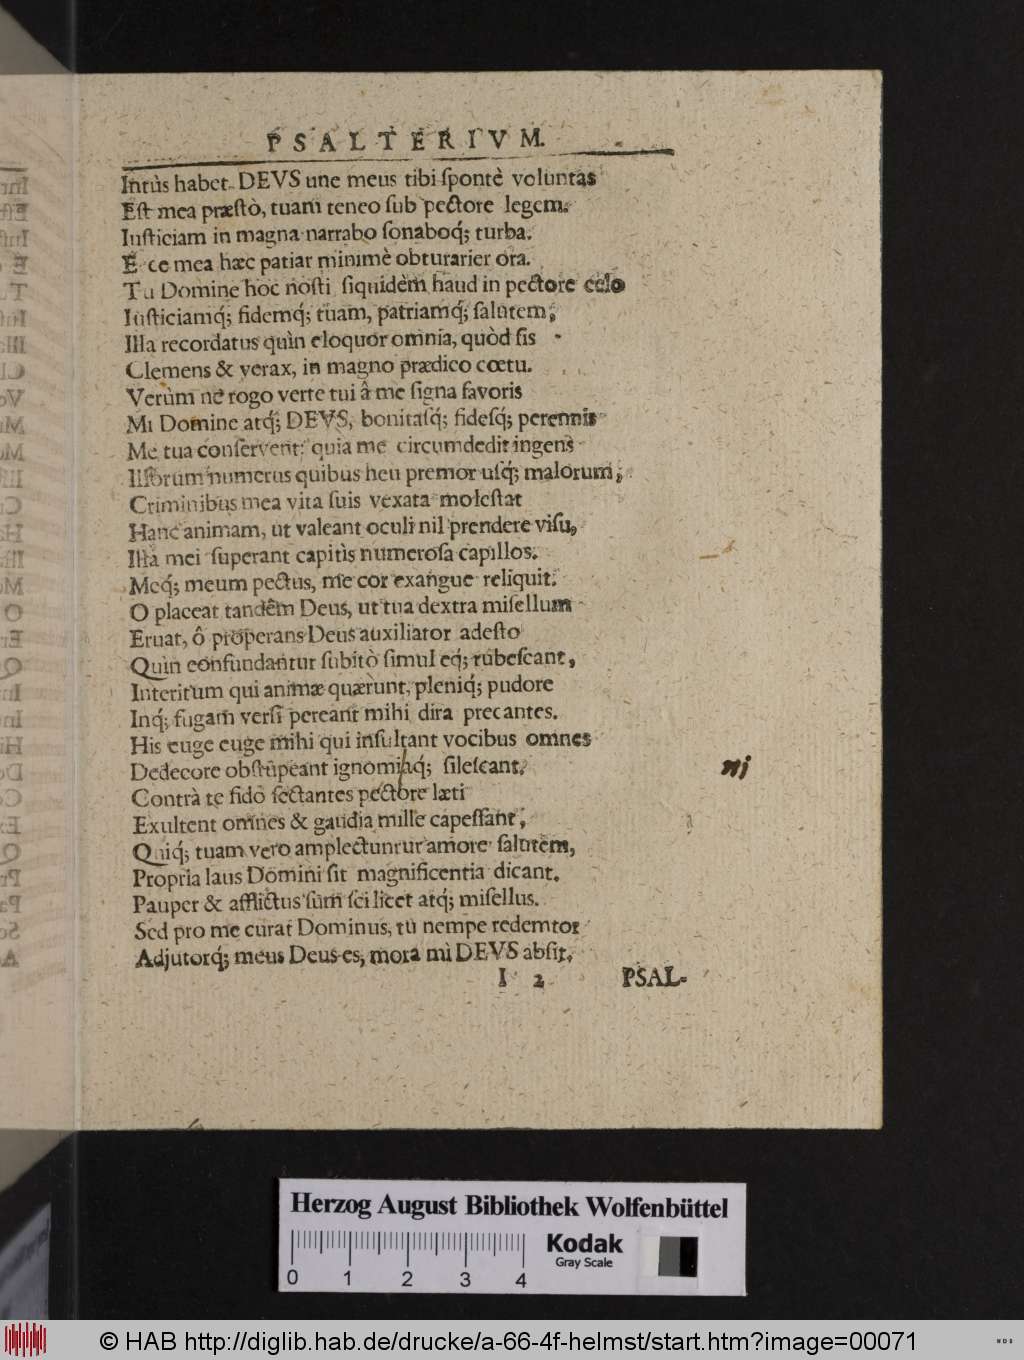 PSALTERIVM.
Intùs habet. DEVS une meus tibi ſpontè voluntas
Eſt mea præſtò, tuam teneo ſub pectore legem.
Iuſticiam in magna narrabo ſonaboq́; turba.
E ce mea hæc patiar minimè obturarier ora.
Tu Domine hoc noſti ſiquidèm haud in pectore celo
Iuſticiamq́; fidemq́; tuam, patriamq́; ſalutem;
Illa recordatus quìn eloquor omnia, quòd ſis
Clemens & verax, in magno prædico cœtu.
Verùm ne rogo verte tui â me ſigna favoris
Mi Domine atq́; DEVS, bonitaſq́; fideſq́; perennis
Me tua conſervent: quia me circumdedit ingens
Illorum numerus quibus heu premor uſq́; malorum;
Criminibus mea vita ſuis vexata moleſtat
Hanc animam, ut valeant oculi nil prendere viſu,
Illa mei ſuperant capitìs numeroſa capillos.
Meq́; meum pectus, me cor exangue reliquit.
O placeat tandêm Deus, ut tua dextra miſellum
Eruat, ô properans Deus auxiliator adeſto
Quìn confundantur ſubitò ſimul eq́; rubeſcant,
Interitum qui animæ quærunt, pleniq́; pudore
Inq́; fugam verſi pereant mihi dira precantes.
His euge euge mihi qui inſultant vocibus omnes
Dedecore obſtupeant ignominaq́; ſileſcant.
ni
Contrà te fido ſectantes pectore læti
Exultent omnes & gaudia mille capeſſant;
Quiq́; tuam vero amplectuntur amore ſalutem,
Propria laus Domini ſit magnificentia dicant.
Pauper & afflictus ſum ſcilicet atq́; miſellus.
Sed pro me curat Dominus, tu nempe redemtor
Adjutorq́; meus Deus es, mora mì DEVS abſit.
I 2 PSAL-
Herzog August Bibliothek Wolfenbüttel
Kodak
Gray Scale
0 1 2 3 4
© HAB http://diglib.hab.de/drucke/a-66-4f-helmst/start.htm?image=00071